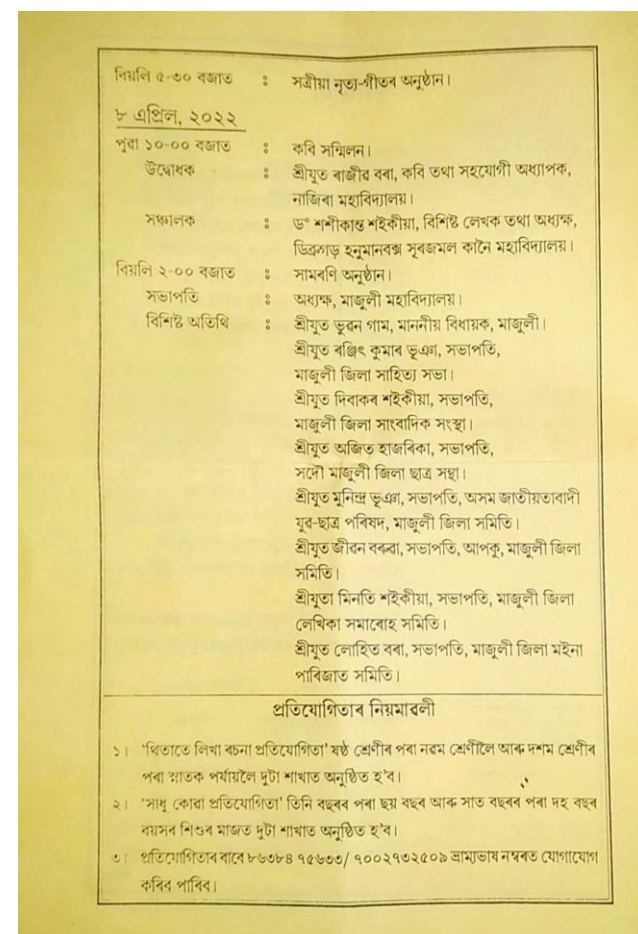 বিয়লি ৫-৩০ বজাত : সত্ৰীয়া নৃত্য-গীতৰ অনুষ্ঠান।
৮ এপ্ৰিল, ২০২২
পুৱা ১০-০০ বজাত : কবি সন্মিলন।
উদ্বোধক : শ্ৰীযুত ৰাজীৱ বৰা, কবি তথা সহযোগী অধ্যাপক,
নাজিৰা মহাবিদ্যালয়।
সঞ্চালক : ড° শশীকান্ত শইকীয়া, বিশিষ্ট লেখক তথা অধ্যক্ষ,
ডিব্ৰুগড় হনুমানবক্স সূৰজমল কানৈ মহাবিদ্যালয়।
বিয়লি ২-০০ বজাত : সামৰণি অনুষ্ঠান।
সভাপতি : অধ্যক্ষ, মাজুলী মহাবিদ্যালয়।
বিশিষ্ট অতিথি : শ্ৰীযুত ভুৱন গাম, মাননীয় বিধায়ক, মাজুলী।
শ্ৰীযুত ৰঞ্জিৎ কুমাৰ ভূঞা, সভাপতি,
মাজুলী জিলা সাহিত্য সভা।
শ্ৰীযুত দিবাকৰ শইকীয়া, সভাপতি,
মাজুলী জিলা সাংবাদিক সংস্থা।
শ্ৰীযুত অজিত হাজৰিকা, সভাপতি,
সদৌ মাজুলী জিলা ছাত্ৰ সন্থা।
শ্ৰীযুত মুনিন্দ্ৰ ভূঞা, সভাপতি, অসম জাতীয়তাবাদী
যুৱ-ছাত্ৰ পৰিষদ, মাজুলী জিলা সমিতি।
শ্ৰীযুত জীৱন বৰুৱা, সভাপতি, আপকু, মাজুলী জিলা
সমিতি।
শ্ৰীযুতা মিনতি শইকীয়া, সভাপতি, মাজুলী জিলা
লেখিকা সমাৰোহ সমিতি।
শ্ৰীযুত লোহিত বৰা, সভাপতি, মাজুলী জিলা মইনা
পাৰিজাত সমিতি।
প্ৰতিযোগিতাৰ নিয়মাৱলী
১। 'থিতাতে লিখা ৰচনা প্ৰতিযোগিতা' ষষ্ঠ শ্ৰেণীৰ পৰা নৱম শ্ৰেণীলৈ আৰু দশম শ্ৰেণীৰ
পৰা স্নাতক পৰ্যায়লৈ দুটা শাখাত অনুষ্ঠিত হ'ব।
২। 'সাধু কোৱা প্ৰতিযোগিতা' তিনি বছৰৰ পৰা ছয় বছৰ আৰু সাত বছৰৰ পৰা দহ বছৰ
বয়সৰ শিশুৰ মাজত দুটা শাখাত অনুষ্ঠিত হ'ব।
৩। প্ৰতিযোগিতাৰ বাবে ৮৬৩৮৪ ৭৫৬৩৩/ ৭০০২৭৩২৫০৯ ভ্ৰাম্যভাষ নম্বৰত যোগাযোগ
কৰিব পাৰিব।